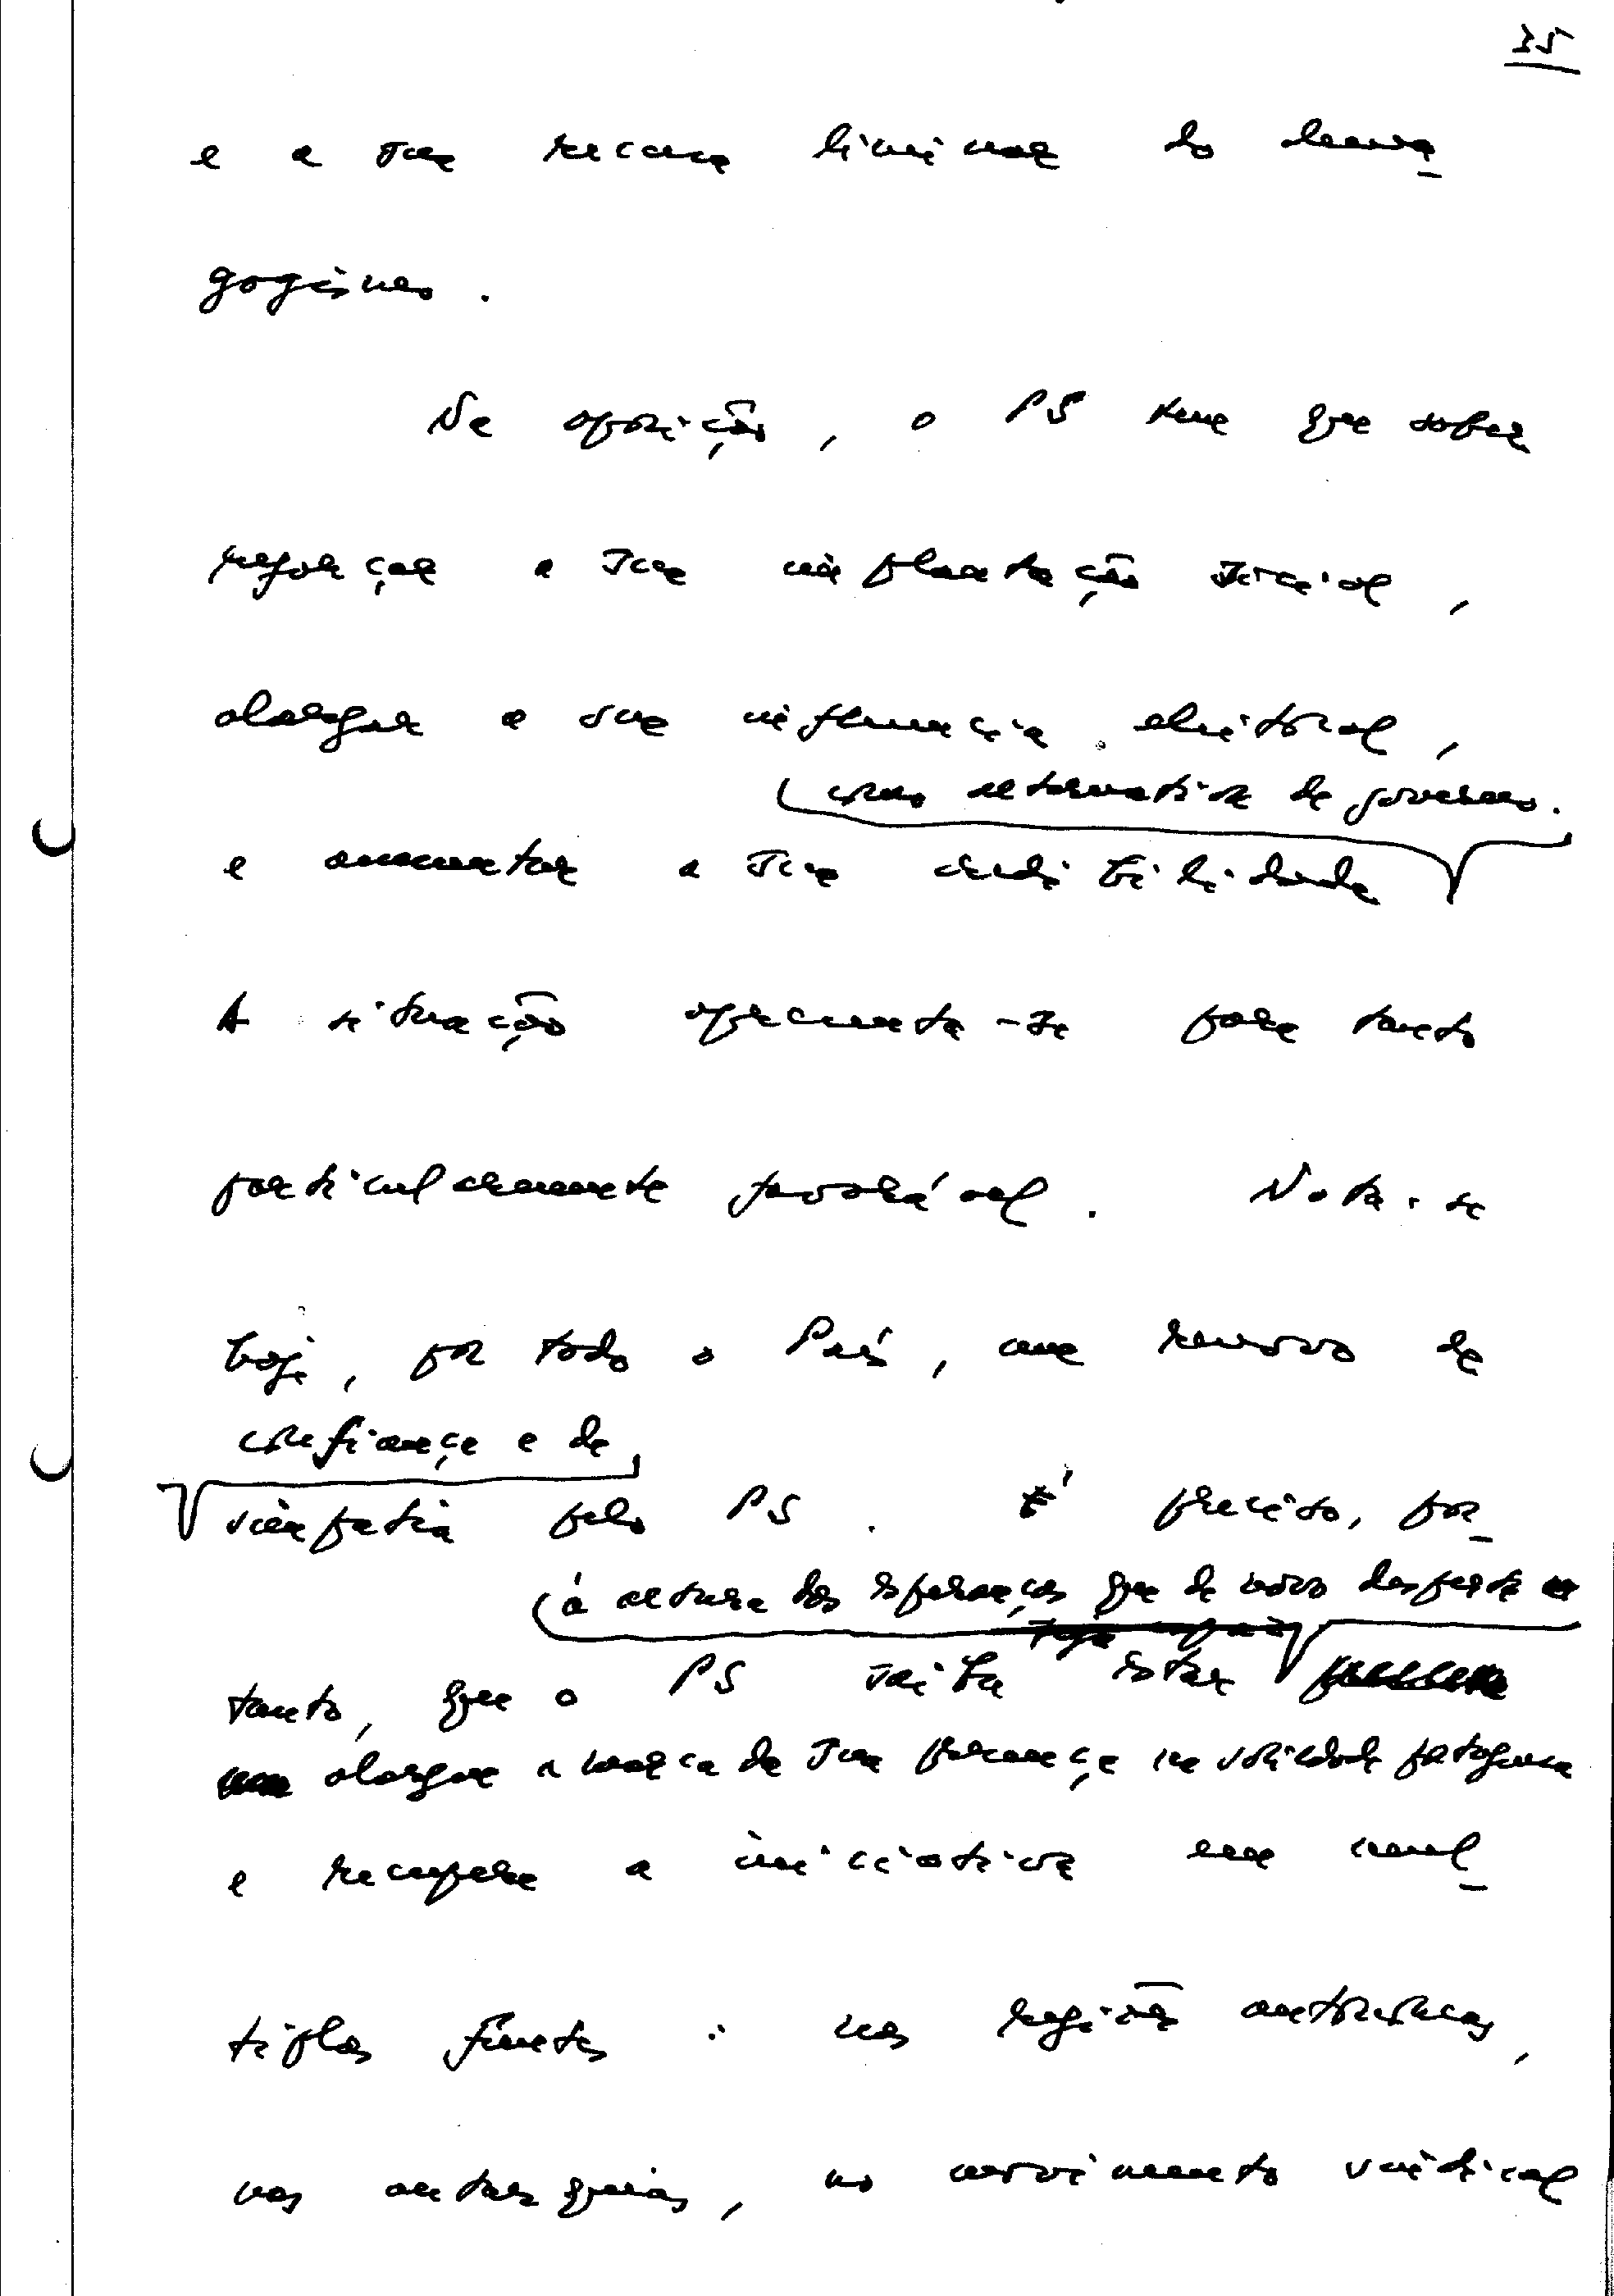 35
e a sua recusa liminar do dema
gogismo.
Na oposição, o PS tem que saber
reforçar a sua implantação social,
alargar a sua influência eleitoral,
como alternativa de governo.
e aumentar a sua credibilidade
A situação apresenta-se para tanto
particularmente favorável. Nota-se
hoje, por todo o País, um renovo de
confiança e de
simpatia pelo PS. É preciso, por
à altura das esperanças que de novo desperta
tanto, que o PS saiba estar
alargue a marca da sua presença na sociedade portuguesa
e recupere a iniciativa em múl
tiplas frentes: nas regiões autónomas,
nas autarquias, no movimento sindical